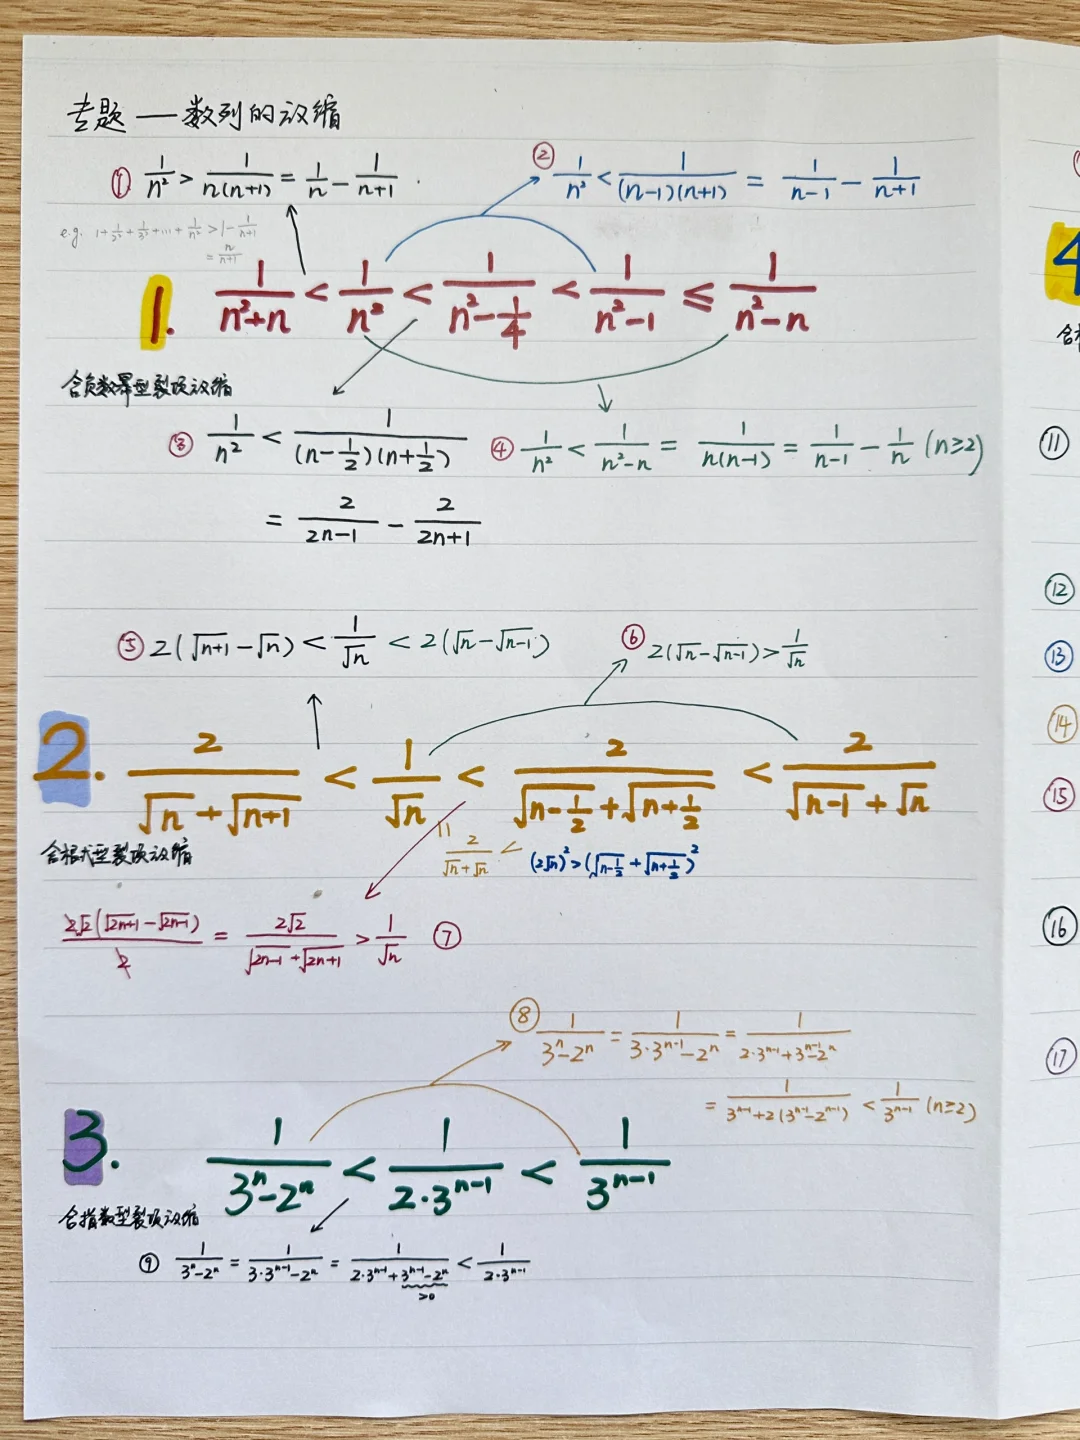 专题——数列的放缩
① 1/n² > 1/(n(n+1)) = 1/n - 1/(n+1)
② 1/n² < 1/((n-1)(n+1)) = 1/(n-1) - 1/(n+1)
e.g. 1+1/2²+1/3²+…+1/n² > 1-1/(n+1)
= n/(n+1)
1. 1/(n²+n) < 1/n² < 1/(n²-1/4) < 1/(n²-1) ≤ 1/(n²-n)
含负数幂型裂项放缩
③ 1/n² < 1/((n-1/2)(n+1/2))
= 2/(2n-1) - 2/(2n+1)
④ 1/n² < 1/(n²-n) = 1/(n(n-1)) = 1/(n-1) - 1/n (n≥2)
⑤ 2(√(n+1) - √n) < 1/√n < 2(√n - √(n-1))
⑥ 2(√n - √(n-1)) > 1/√n
2. 2/(√n+√(n+1)) < 1/√n < 2/(√(n-1/2)+√(n+1/2)) < 2/(√(n-1)+√n)
含根式型裂项放缩
= 2/(√n+√n) <
(2√n)² > (√(n-1/2)+√(n+1/2))²
2√2(√(2n+1)-√(2n-1))/2 = 2√2/(√(2n-1)+√(2n+1)) > 1/√n ⑦
⑧ 1/(3ⁿ-2ⁿ) = 1/(3·3ⁿ⁻¹-2ⁿ) = 1/(2·3ⁿ⁻¹+3ⁿ⁻¹-2ⁿ)
= 1/(3ⁿ⁻¹+2(3ⁿ⁻¹-2ⁿ⁻¹)) < 1/3ⁿ⁻¹ (n≥2)
3. 1/(3ⁿ-2ⁿ) < 1/(2·3ⁿ⁻¹) < 1/3ⁿ⁻¹
含指数型裂项放缩
⑨ 1/(3ⁿ-2ⁿ) = 1/(3·3ⁿ⁻¹-2ⁿ) = 1/(2·3ⁿ⁻¹+3ⁿ⁻¹-2ⁿ) < 1/(2·3ⁿ⁻¹)
>0
4
含
⑪
⑫
⑬
⑭
⑮
⑯
⑰